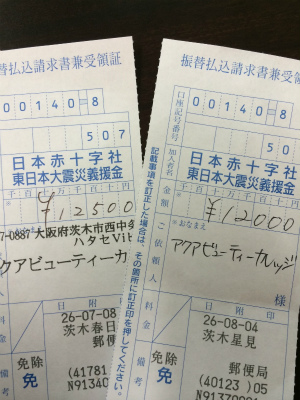 替払込請求書兼受領証
00140-8
507
日本赤十字社
東日本大震災義援金
千百十万千百十円
¥12500
7-0887 大阪府茨木市西中条
ハタセビル
クアビューティーカ
日附印
26-07-08
茨木春日
郵便
料金
備考
免除
免
(41781
N9134
振替払込請求書兼受領証
口座記号番号
00140-8
507
加入者名
日本赤十字社
東日本大震災義援金
金額
千百十万千百十円
¥12000
ご依頼人
※おなまえ
アクアビューティーカレッジ
様
日附印
26-08-04
茨木星見
郵便局
料金
備考
免除
免
(40123 )05
記載事項を訂正した場合は、その箇所に訂正印を押してください。